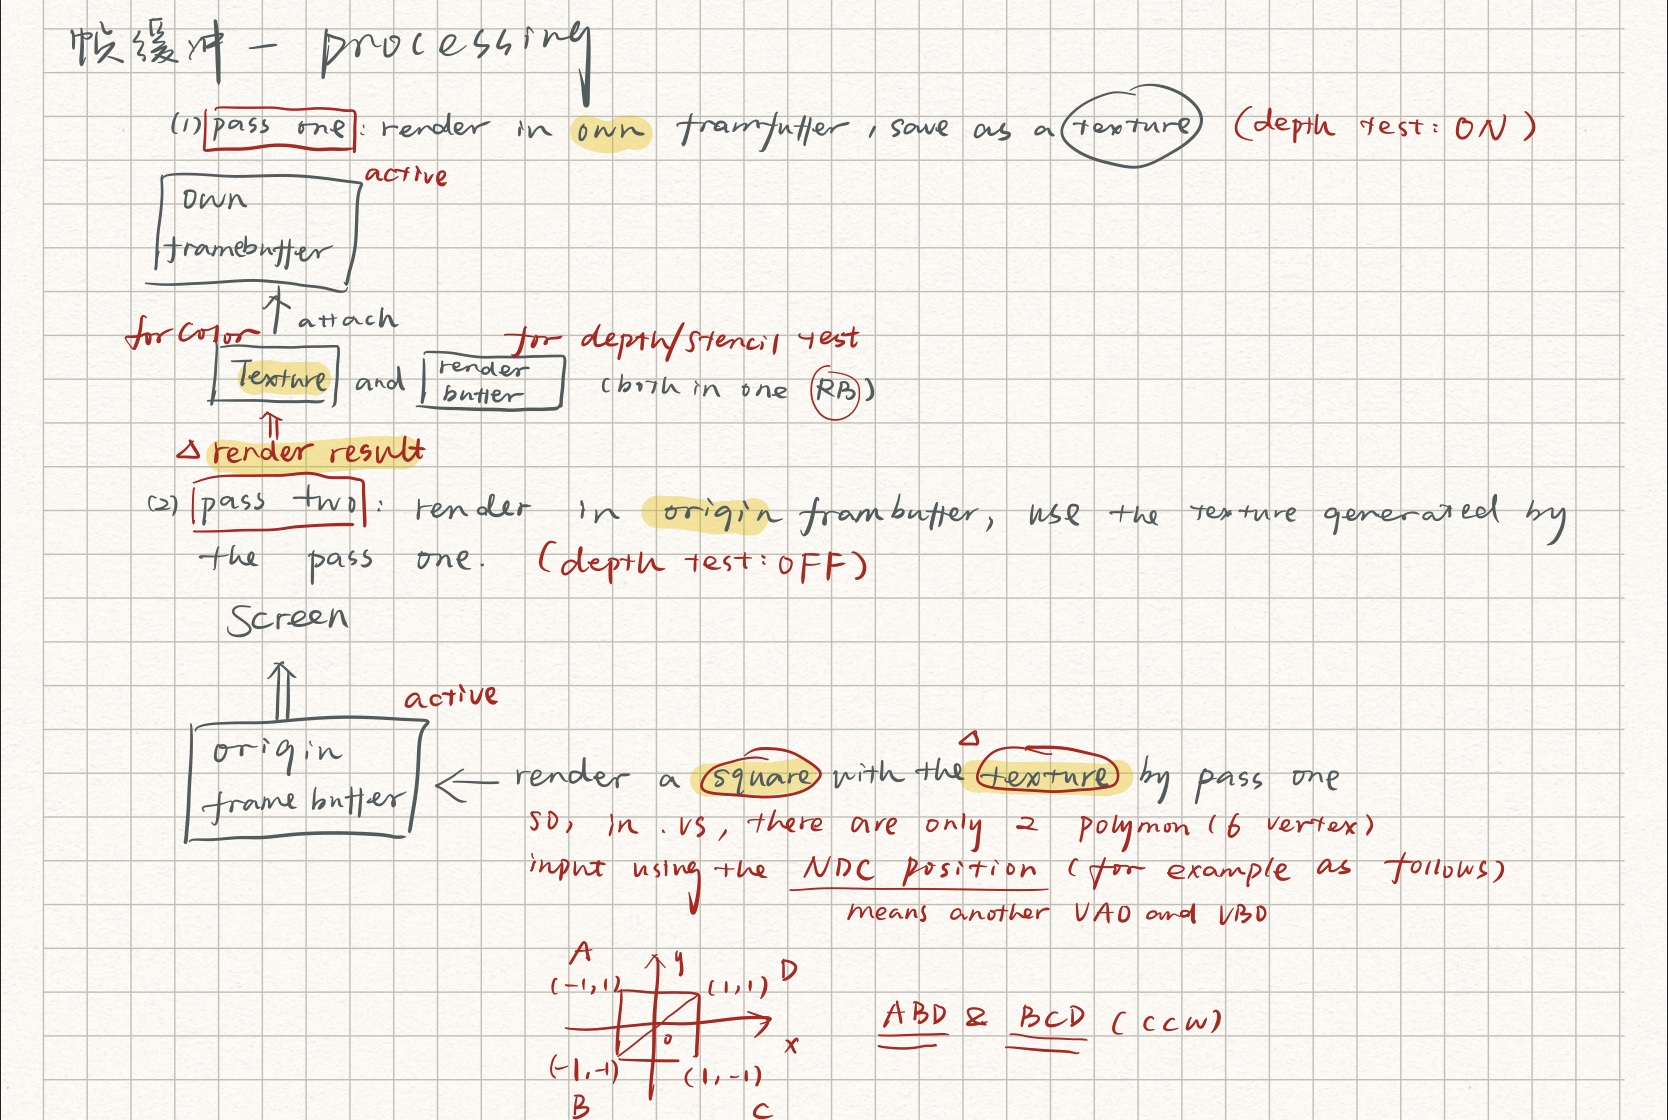 帧缓冲 — processing
(1) pass one: render in own framfuffer, save as a texture (depth test: ON)
active
own
framebuffer
attach
for color
for depth/stencil test
Texture and render buffer (both in one RB)
△ render result
(2) pass two: render in origin frambuffer, use the texture generated by
the pass one. (depth test: OFF)
Screen
active
origin
frame buffer
△
render a square with the texture by pass one
so, in .vs, there are only 2 polymon (6 vertex)
input using the NDC position (for example as follows)
means another VAO and VBO
A y D
(-1,1) (1,1)
ABD & BCD (CCW)
0 x
(-1,-1) (1,-1)
B C